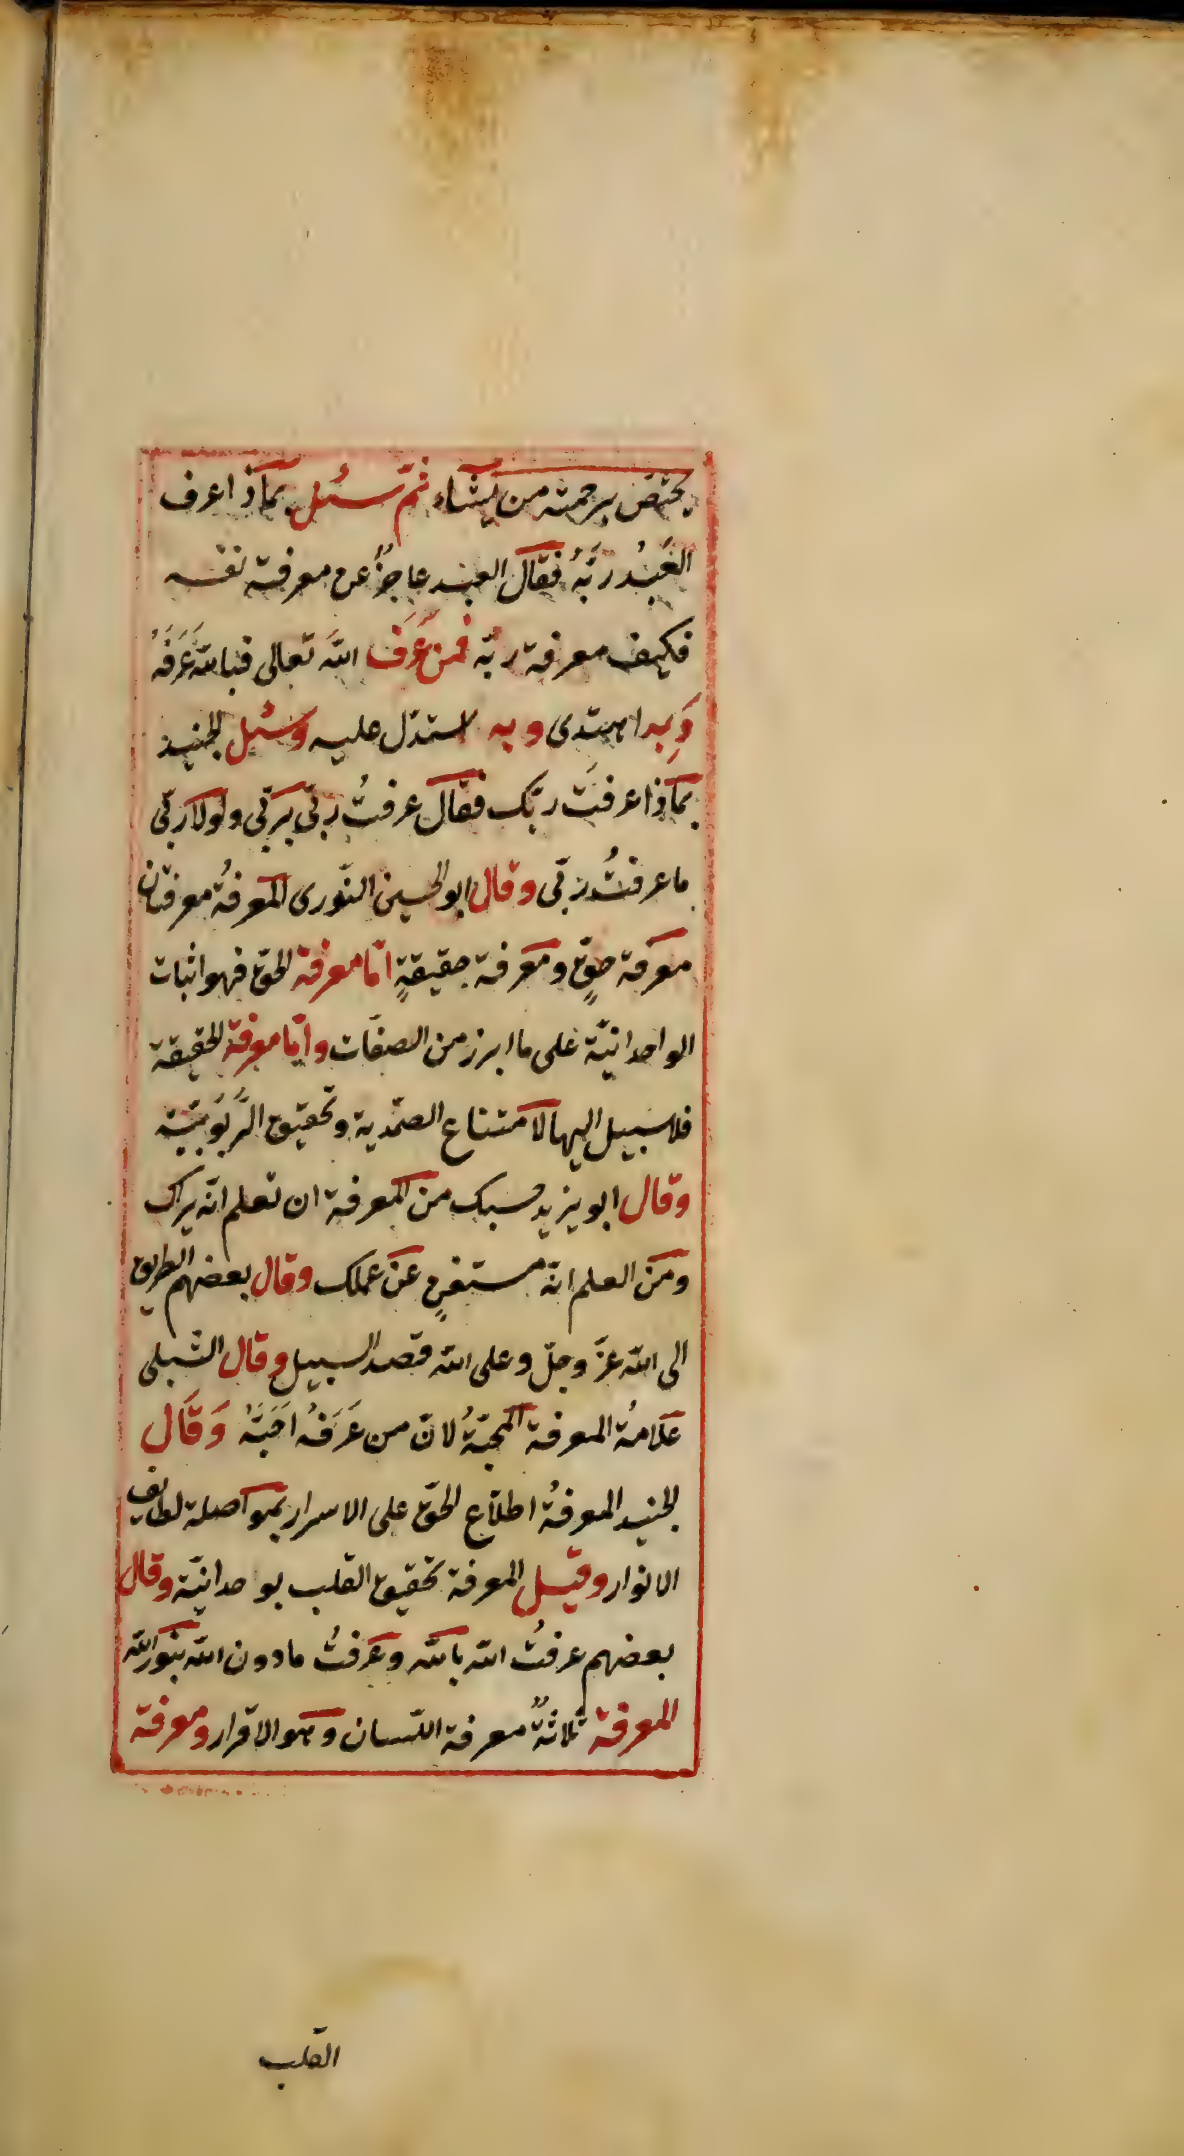 يختص برحمته من يشاء ثم سئل بماذا عرف
العَبْدُ رَبَّهُ فقال العبد عاجزٌ عن معرفة نفسه
فكيف معرفة ربّه فمن عَرَف اللهَ تعالى فبالله عَرَفَهُ
وَبِه اهتدى وبه استدل عليه وسئل الجنيد
بماذا عرفتَ ربّك فقال عرفتُ ربّي بربّي ولولا ربّي
ما عرفتُ ربّي وقال ابو الحسين النّورى المعرفةُ معرفتان
معرفة حقٍّ ومعرفة حقيقةٍ امّا معرفة الحقّ فهو اثبات
الواحدانيّة على ما ابرز من الصفات وامّا معرفة الحقيقة
فلا سبيل اليها لامتناع الصّمدية وتحقيق الرَّبُوبَيّة
وقال ابو يزيد حسبك من المعرفة ان تعلم انّه يراك
ومن العلم انّه مستغنٍ عن عملك وقال بعضهم الطريق
الى الله عزّ وجلّ وعلى الله قصد السبيل وقال الشّبلى
علامةُ المعرفة المحبّةُ لانّ من عَرَفَهُ اَحَبَّهُ وَقَال
الجنيد المعرفةُ اطلاع الحقّ على الاسرار بمواصلة لطايف
الانوار وقيل المعرفة تحقيق القلب بواحدانيّة وقال
بعضهم عرفتُ الله بالله وعرفتُ ما دون الله بنور الله
المعرفة ثلاثةٌ معرفة اللّسان وهو الاقرار ومعرفة
القلب